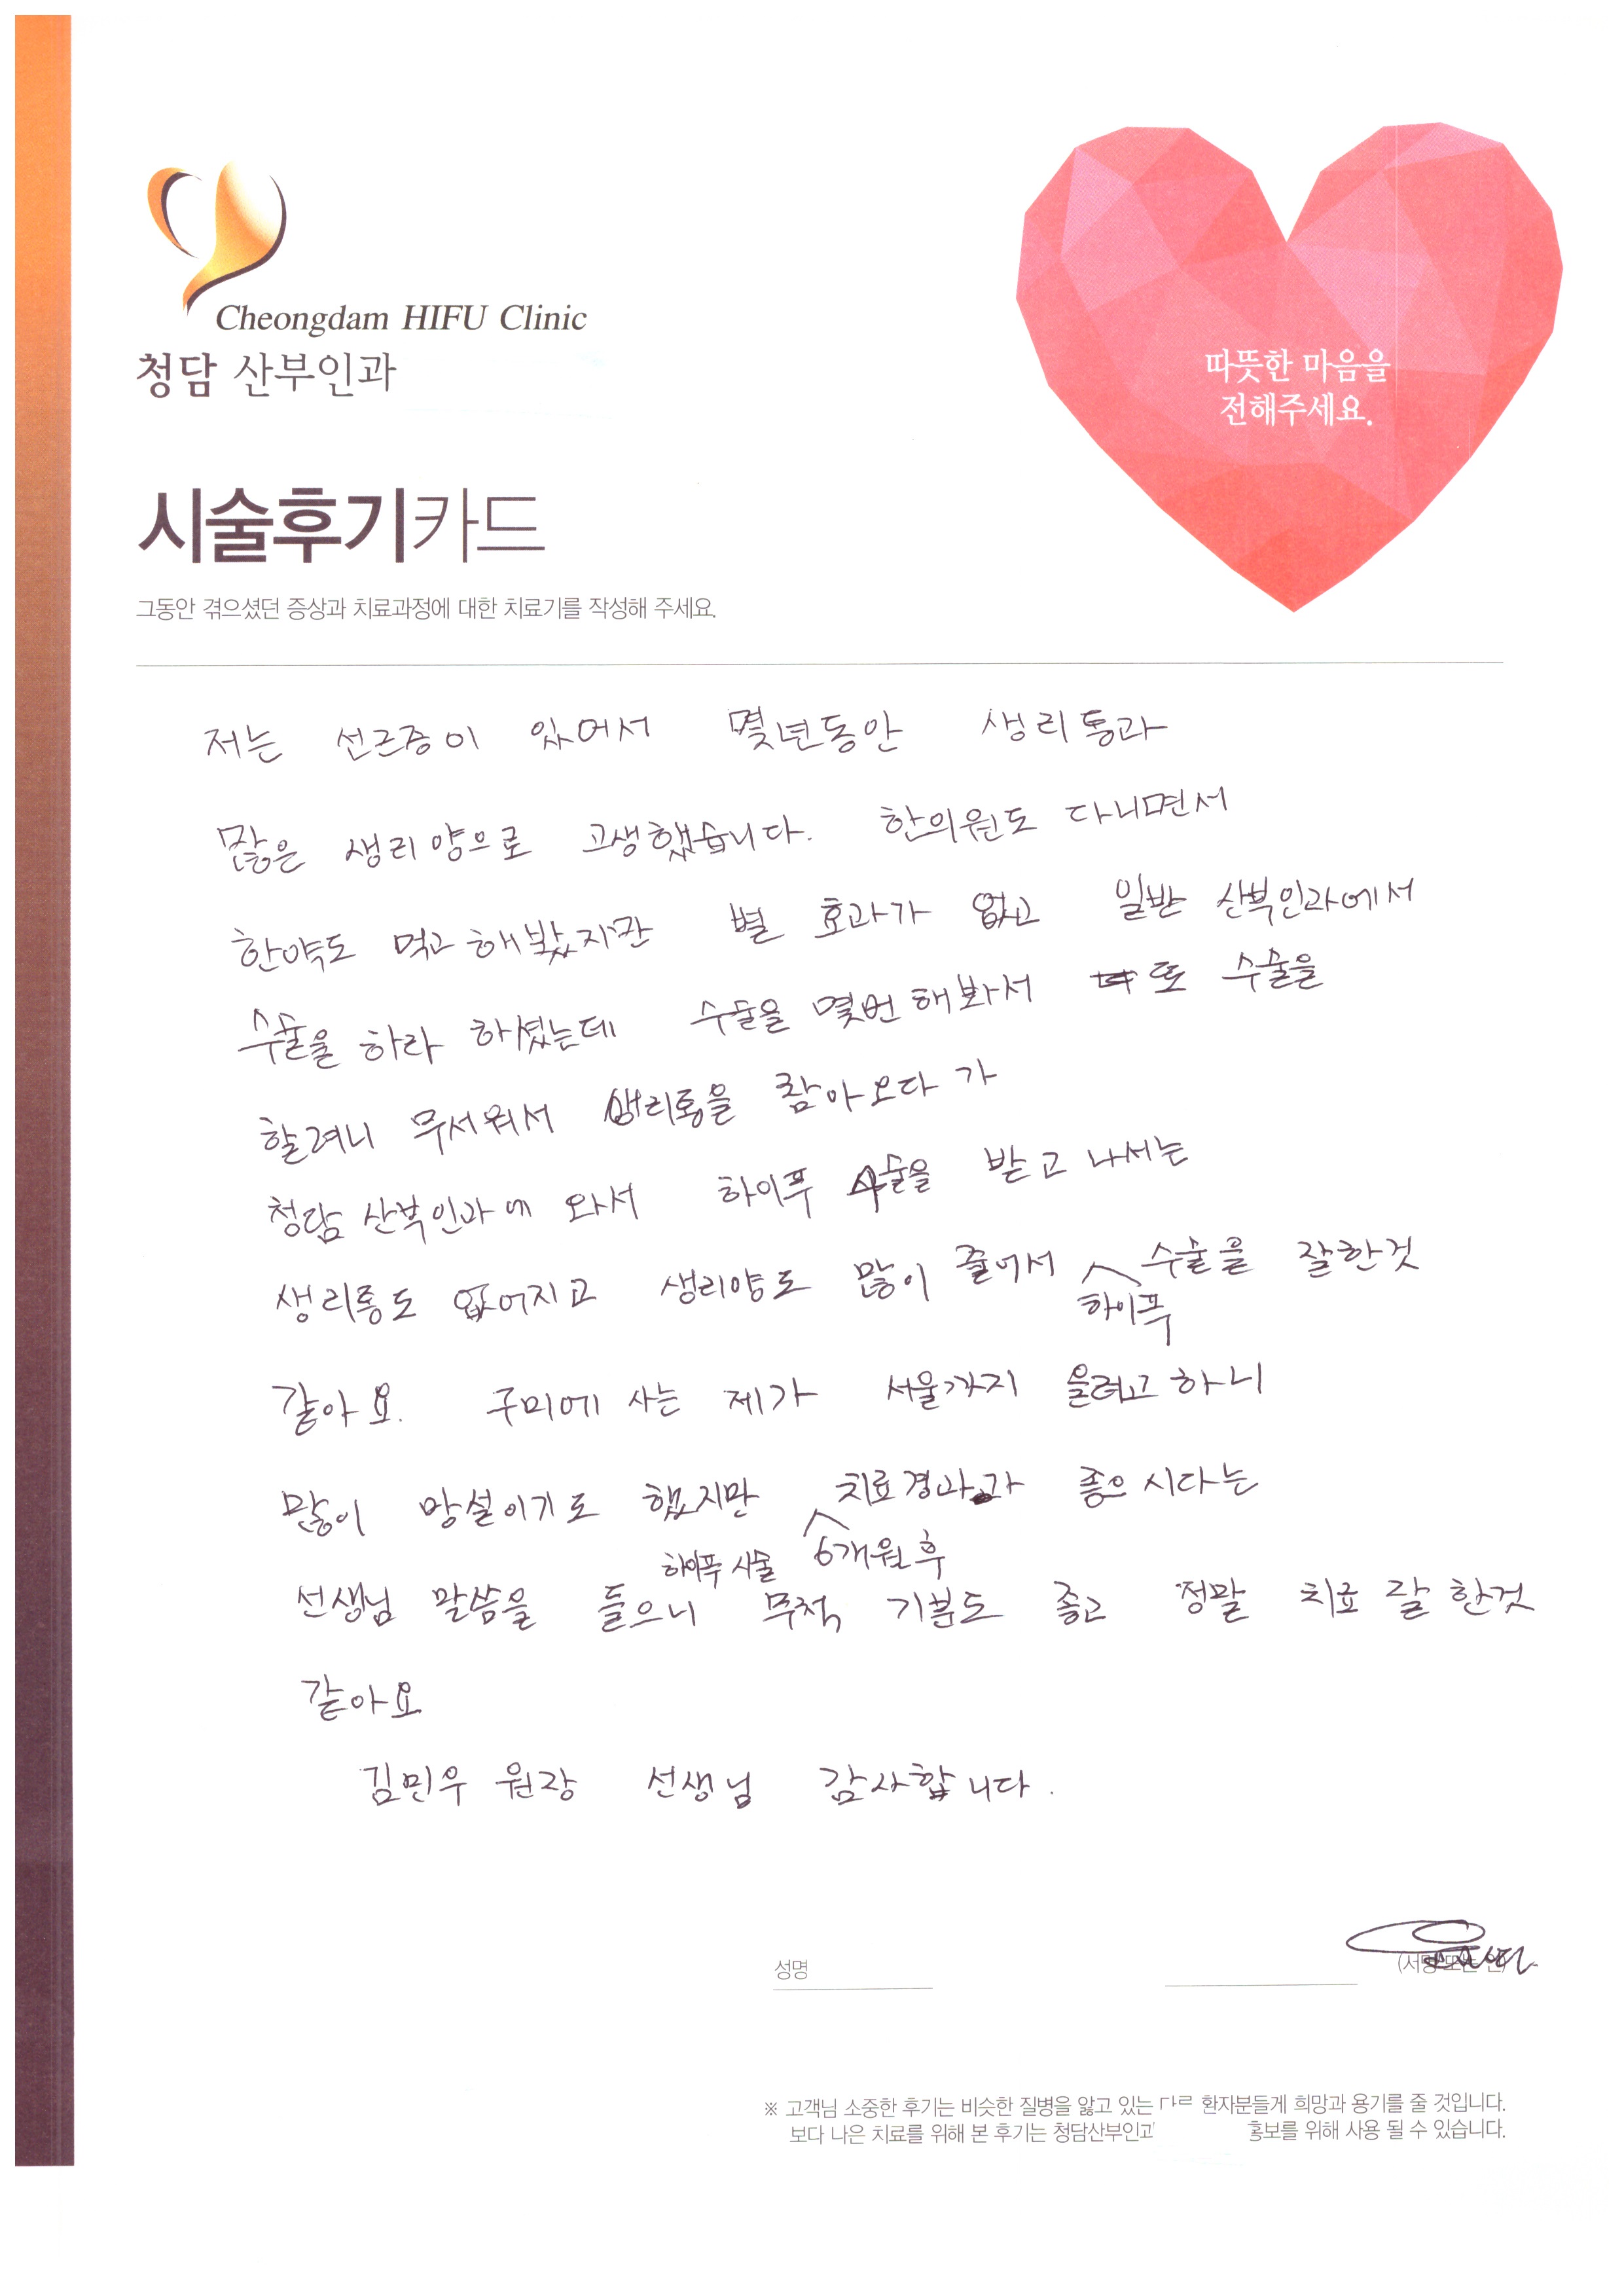 Cheongdam HIFU Clinic
청담 산부인과
따뜻한 마음을
전해주세요.
시술후기카드
그동안 겪으셨던 증상과 치료과정에 대한 치료기를 작성해 주세요.
저는 선근증이 있어서 몇년동안 생리통과
많은 생리양으로 고생했습니다. 한의원도 다니면서
한약도 먹고 해봤지만 별 효과가 없고 일반 산부인과에서
수술을 하라 하셨는데 수술을 몇번 해봐서 또 수술을
할려니 무서워서 생리통을 참아오다가
청담 산부인과에 와서 하이푸 시술을 받고 나서는
생리통도 없어지고 생리양도 많이 줄어서 수술을 잘한것
하이푸
같아요. 구미에 사는 제가 서울까지 올려고 하니
많이 망설이기도 했지만 치료경과가 좋으시다는
하이푸 시술 6개월 후
선생님 말씀을 들으니 무척 기분도 좋고 정말 치료 잘 한것
같아요
김민우 원장 선생님 감사합니다.
성명
※ 고객님 소중한 후기는 비슷한 질병을 앓고 있는 다르 환자분들게 희망과 용기를 줄 것입니다.
보다 나은 치료를 위해 본 후기는 청담산부인고 홍보를 위해 사용 될 수 있습니다.